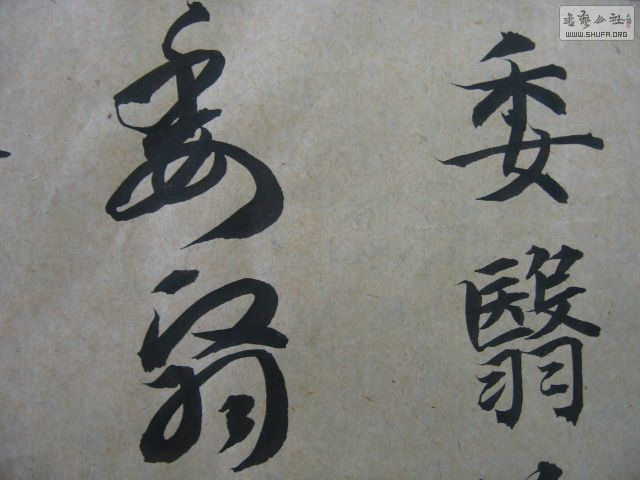 委翳
委翳
书艺公社
WWW.SHUFA.ORG